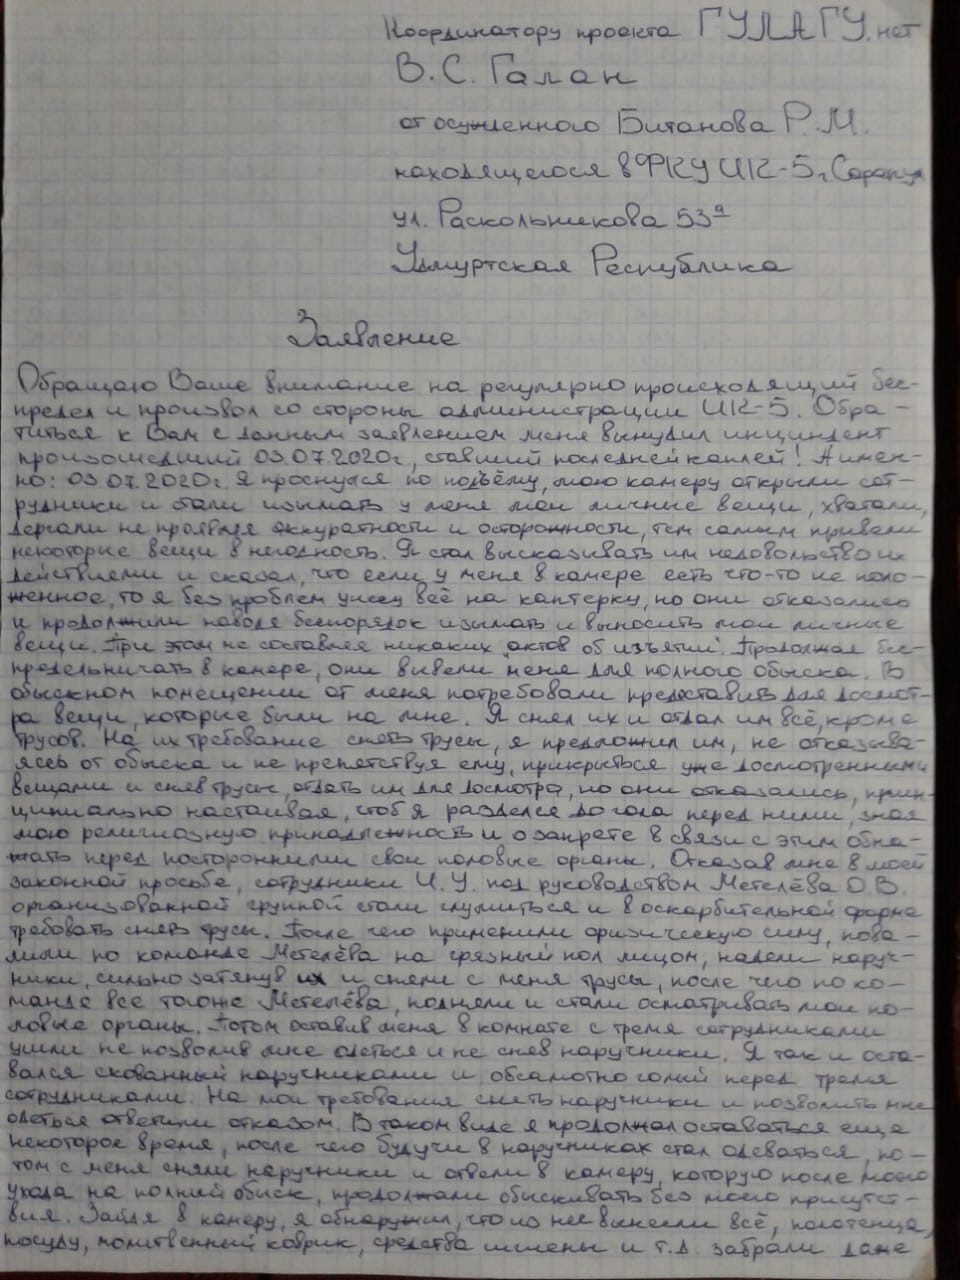 Координатору проекта ГУЛАГУ.нет
В.С. Галан
от осужденного Битанова Р.М.
находящегося в ФКУ ИК-5 г. Сарапул
ул. Раскольникова 53а
Удмуртская Республика
Заявление
Обращаю Ваше внимание на регулярно происходящий бес-
предел и произвол со стороны администрации ИК-5. Обра-
титься к Вам с данным заявлением меня вынудил инциндент
произошедший 03.07.2020г., ставший последней каплей! А имен-
но: 03.07.2020г. Я проснулся по подъёму, мою камеру открыли сот-
рудники и стали изымать у меня мои личные вещи, хватали,
дергали не проявляя аккуратности и осторожности, тем самым привели
некоторые вещи в негодность. Я стал высказывать им недовольство их
действиями и сказал, что если у меня в камере есть что-то не поло-
женное, то я без проблем унесу всё на каптерку, но они отказались
и продолжили наводя беспорядок изымать и выносить мои личные
вещи. При этом не составляя никаких актов об изъятии. Продолжая бес-
предельничать в камере, они вывели меня для полного обыска. В
обыскном помещении от меня потребовали предоставить для досмот-
ра вещи, которые были на мне. Я снял их и отдал им всё, кроме
трусов. На их требование снять трусы, я предложил им, не отказыва-
ясь от обыска и не препятствуя ему, прикрыться уже досмотренными
вещами и сняв трусы, отдать им для досмотра, но они отказались, прин-
ципиально настаивая, чтоб я разделся до гола перед ними, зная
мою религиозную принадлежность и о запрете в связи с этим обна-
жать перед посторонними свои половые органы. Отказав мне в моей
законной прозьбе, сотрудники И.У. под руководством Метелёва О.В.
организованной группой стали глумиться и в оскарбительной форме
требовать снять трусы. После чего применили физическую силу, пова-
лили по команде Метелёва на грязный пол лицом, надели наруч-
ники, сильно затянув их и сняли с меня трусы, после чего по ко-
манде все того же Метелёва, подняли и стали осматривать мои по-
ловые органы. Потом оставив меня в комнате с тремя сотрудниками
ушли не позволив мне одеться и не сняв наручники. Я так и оста-
вался скованный наручниками и обсалютно голый перед тремя
сотрудниками. На мои требования снять наручники и позволить мне
одеться ответили отказом. В таком виде я продолжал оставаться еще
некоторое время, после чего будучи в наручниках стал одеваться, по-
том с меня сняли наручники и отвели в камеру, которую после моего
ухода на полный обыск, продолжали обыскивать без моего присутст-
вия. Зайдя в камеру, я обнаружил, что из нее вынесли всё, полотенца,
посуду, молитвенный коврик, средства гигиены и т.д. забрали даже